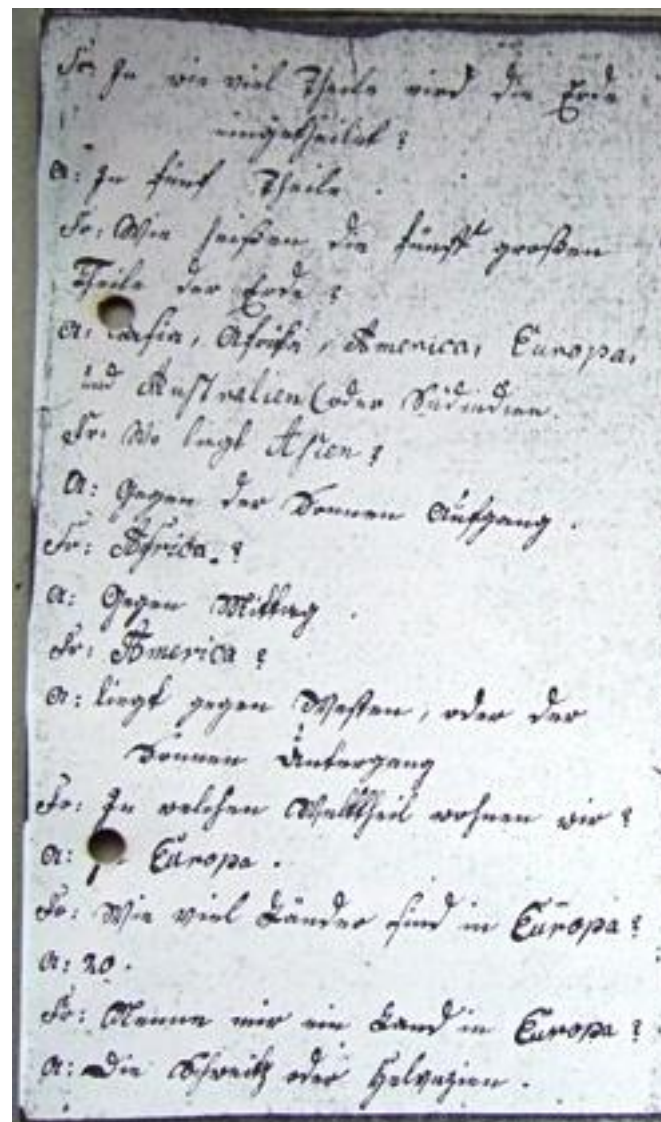 Fr: In wie viel Theile wird die Erde
eingetheilet?
A: In fünf Theile.
Fr: Wie heißen die fünf großen
Theile der Erde?
A: Asia, Afrika, America, Europa,
und Australien (oder Südindien.
Fr: Wo liegt Asien?
A: Gegen der Sonnen Aufgang.
Fr: Africa.?
A: Gegen Mittag.
Fr: America?
A: liegt gegen Westen, oder der
Sonnen Untergang
Fr: In welchen Welttheil wohnen wir?
A: Europa.
Fr: Wie viel Länder sind in Europa?
A: 20.
Fr: Nenne mir ein Land in Europa?
A: Die Schweitz oder Helvezien.